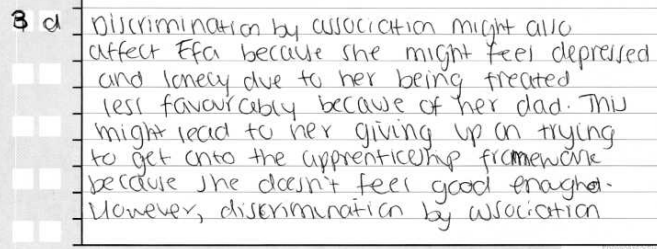 3 d Discrimination by association might also
affect Efa because she might feel depressed
and lonely due to her being treated
less favourably because of her dad. This
might lead to her giving up on trying
to get onto the apprenticeship framework
because she doesn't feel good enough.
However, discrimination by association